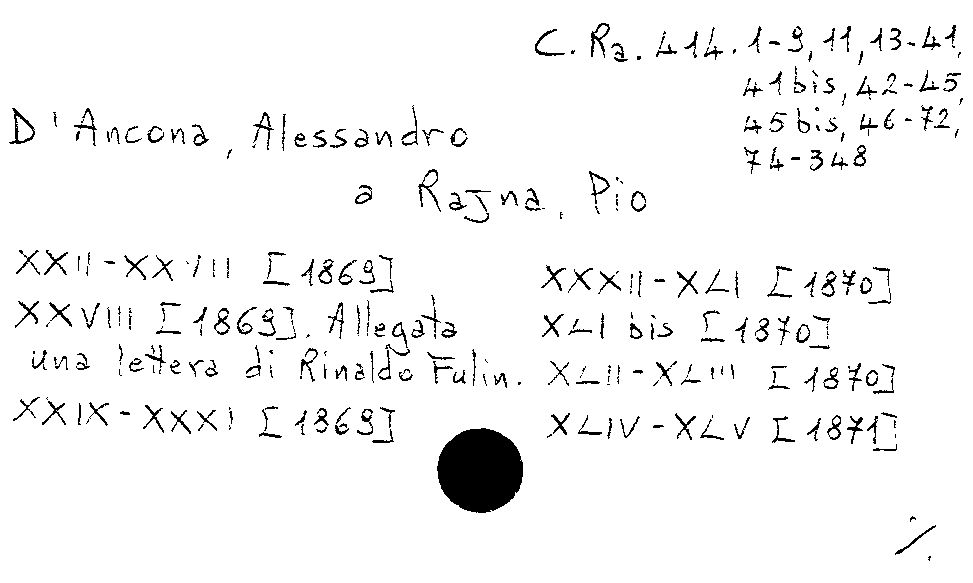 C. Ra. 414. 1-9, 11, 13-41,
41 bis, 42-45,
45 bis, 46-72,
74-348
D'Ancona, Alessandro
a Rajna, Pio
XXII-XXVIII [1869]
XXVIII [1869]. Allegata
una lettera di Rinaldo Fulin.
XXIX-XXXI [1869]
XXXII-XLI [1870]
XLI bis [1870]
XLII-XLIII [1870]
XLIV-XLV [1871]
./.